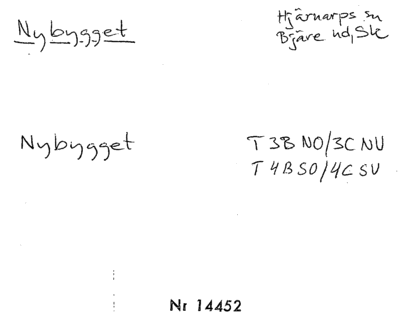 Nybygget
Hjärnarps sn
Bjäre hd, Sk
Nybygget
T 3B NO/3C NV
T 4B SO/4C SV
Nr 14452